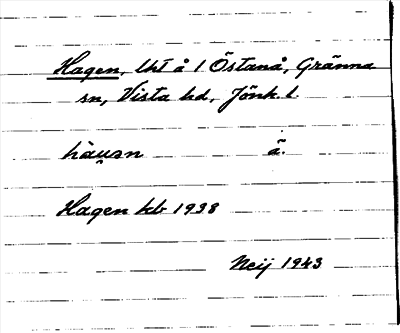 Hagen, lht å 1 Östanå, Gränna
sn, Vista hd, Jönk. l.
hàu̯ən ä.
Hagen kb 1938
Neij 1943